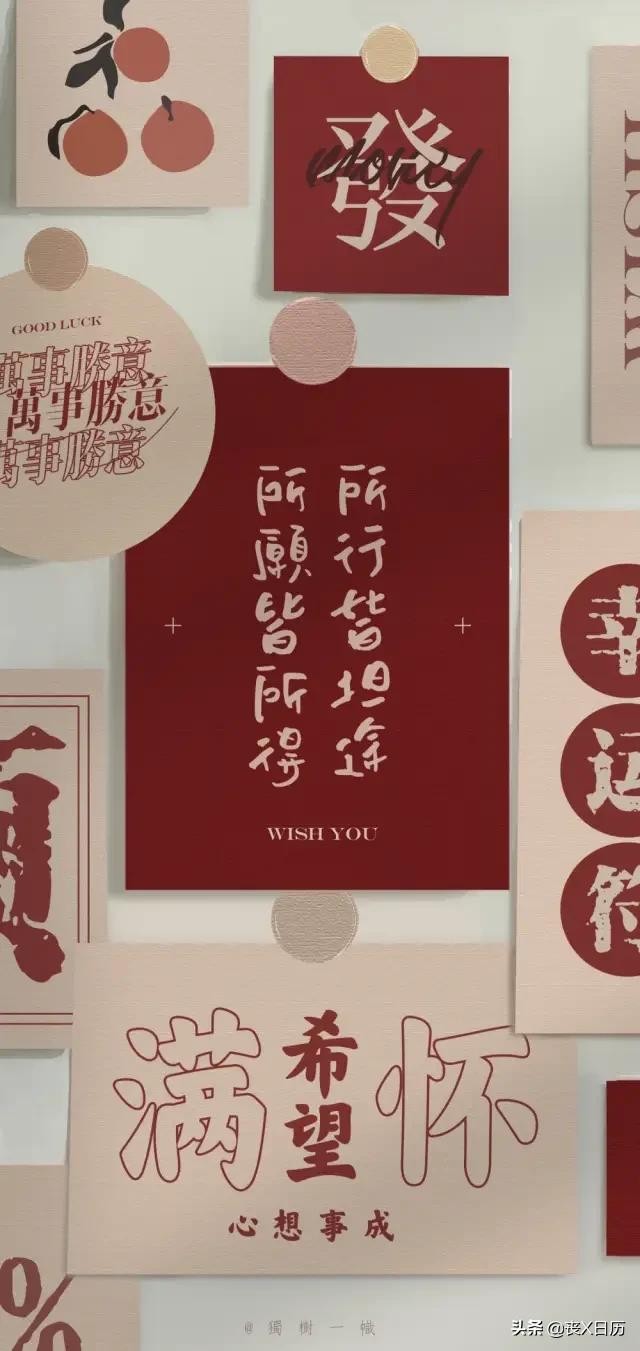 發
money
GOOD LUCK
萬事勝意
萬事勝意
萬事勝意
所行皆坦途
所願皆所得
WISH YOU
幸
运
符
满怀
希望
心想事成
%
@獨樹一幟
头条 @丧X日历